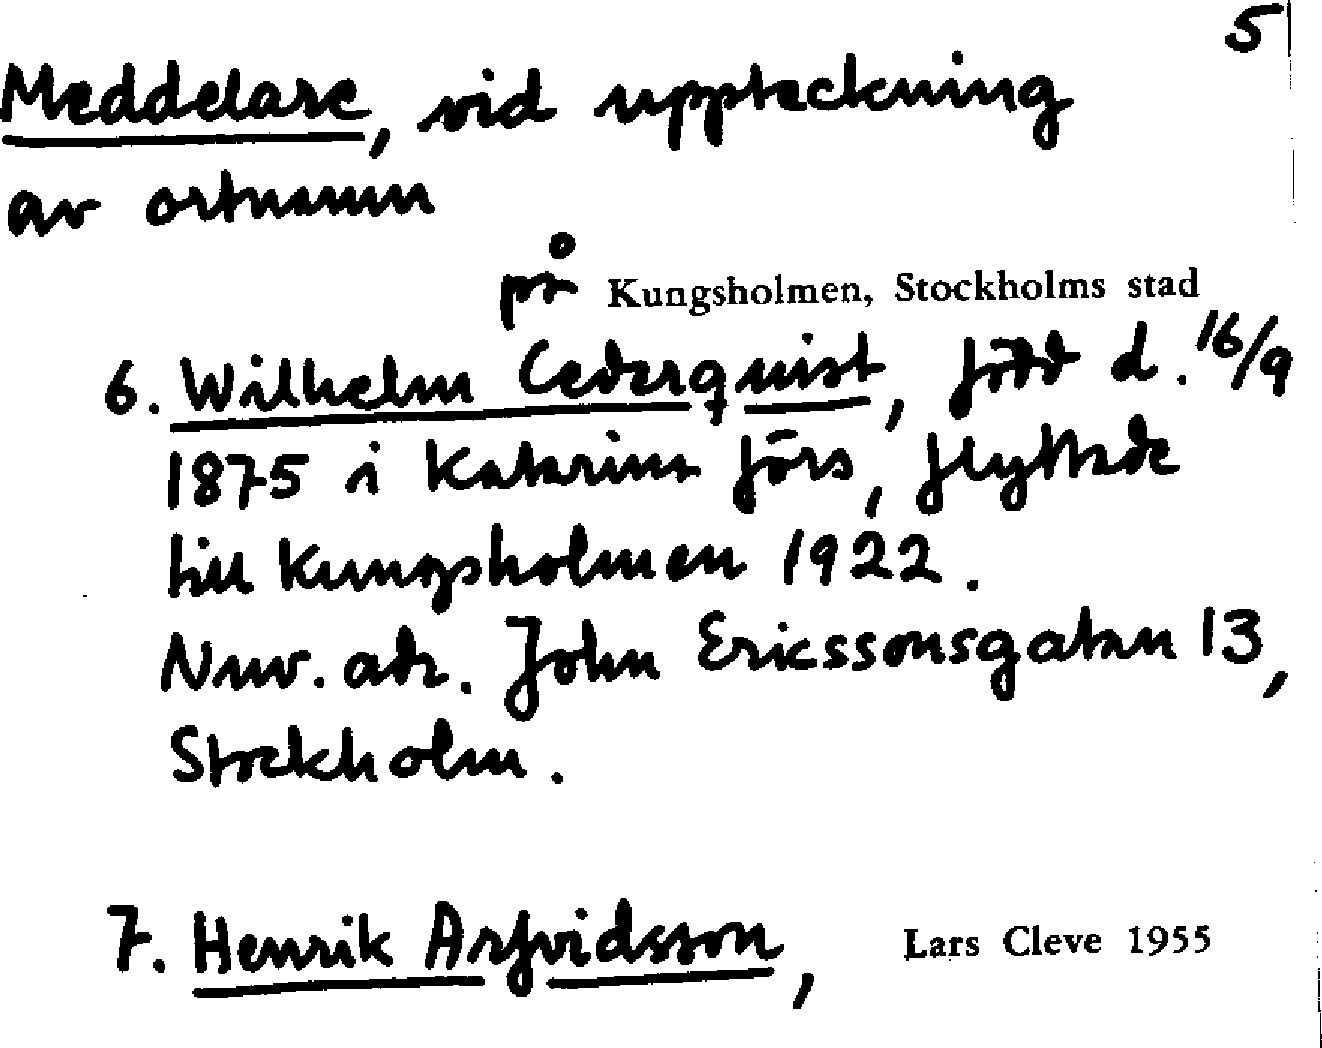 5
Meddelare, vid uppteckning
av ortnamn
på Kungsholmen, Stockholms stad
6. Wilhelm Cederquist, född d. 16/9
1875 i Katarina förs, flyttade
till Kungsholmen 1922.
Nuv. adr. John Ericssonsgatan 13,
Stockholm.
7. Henrik Arfvidsson, Lars Cleve 1955